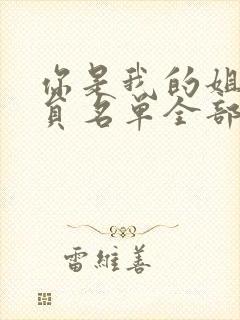 你是我的姐
员名单全部
雷维善